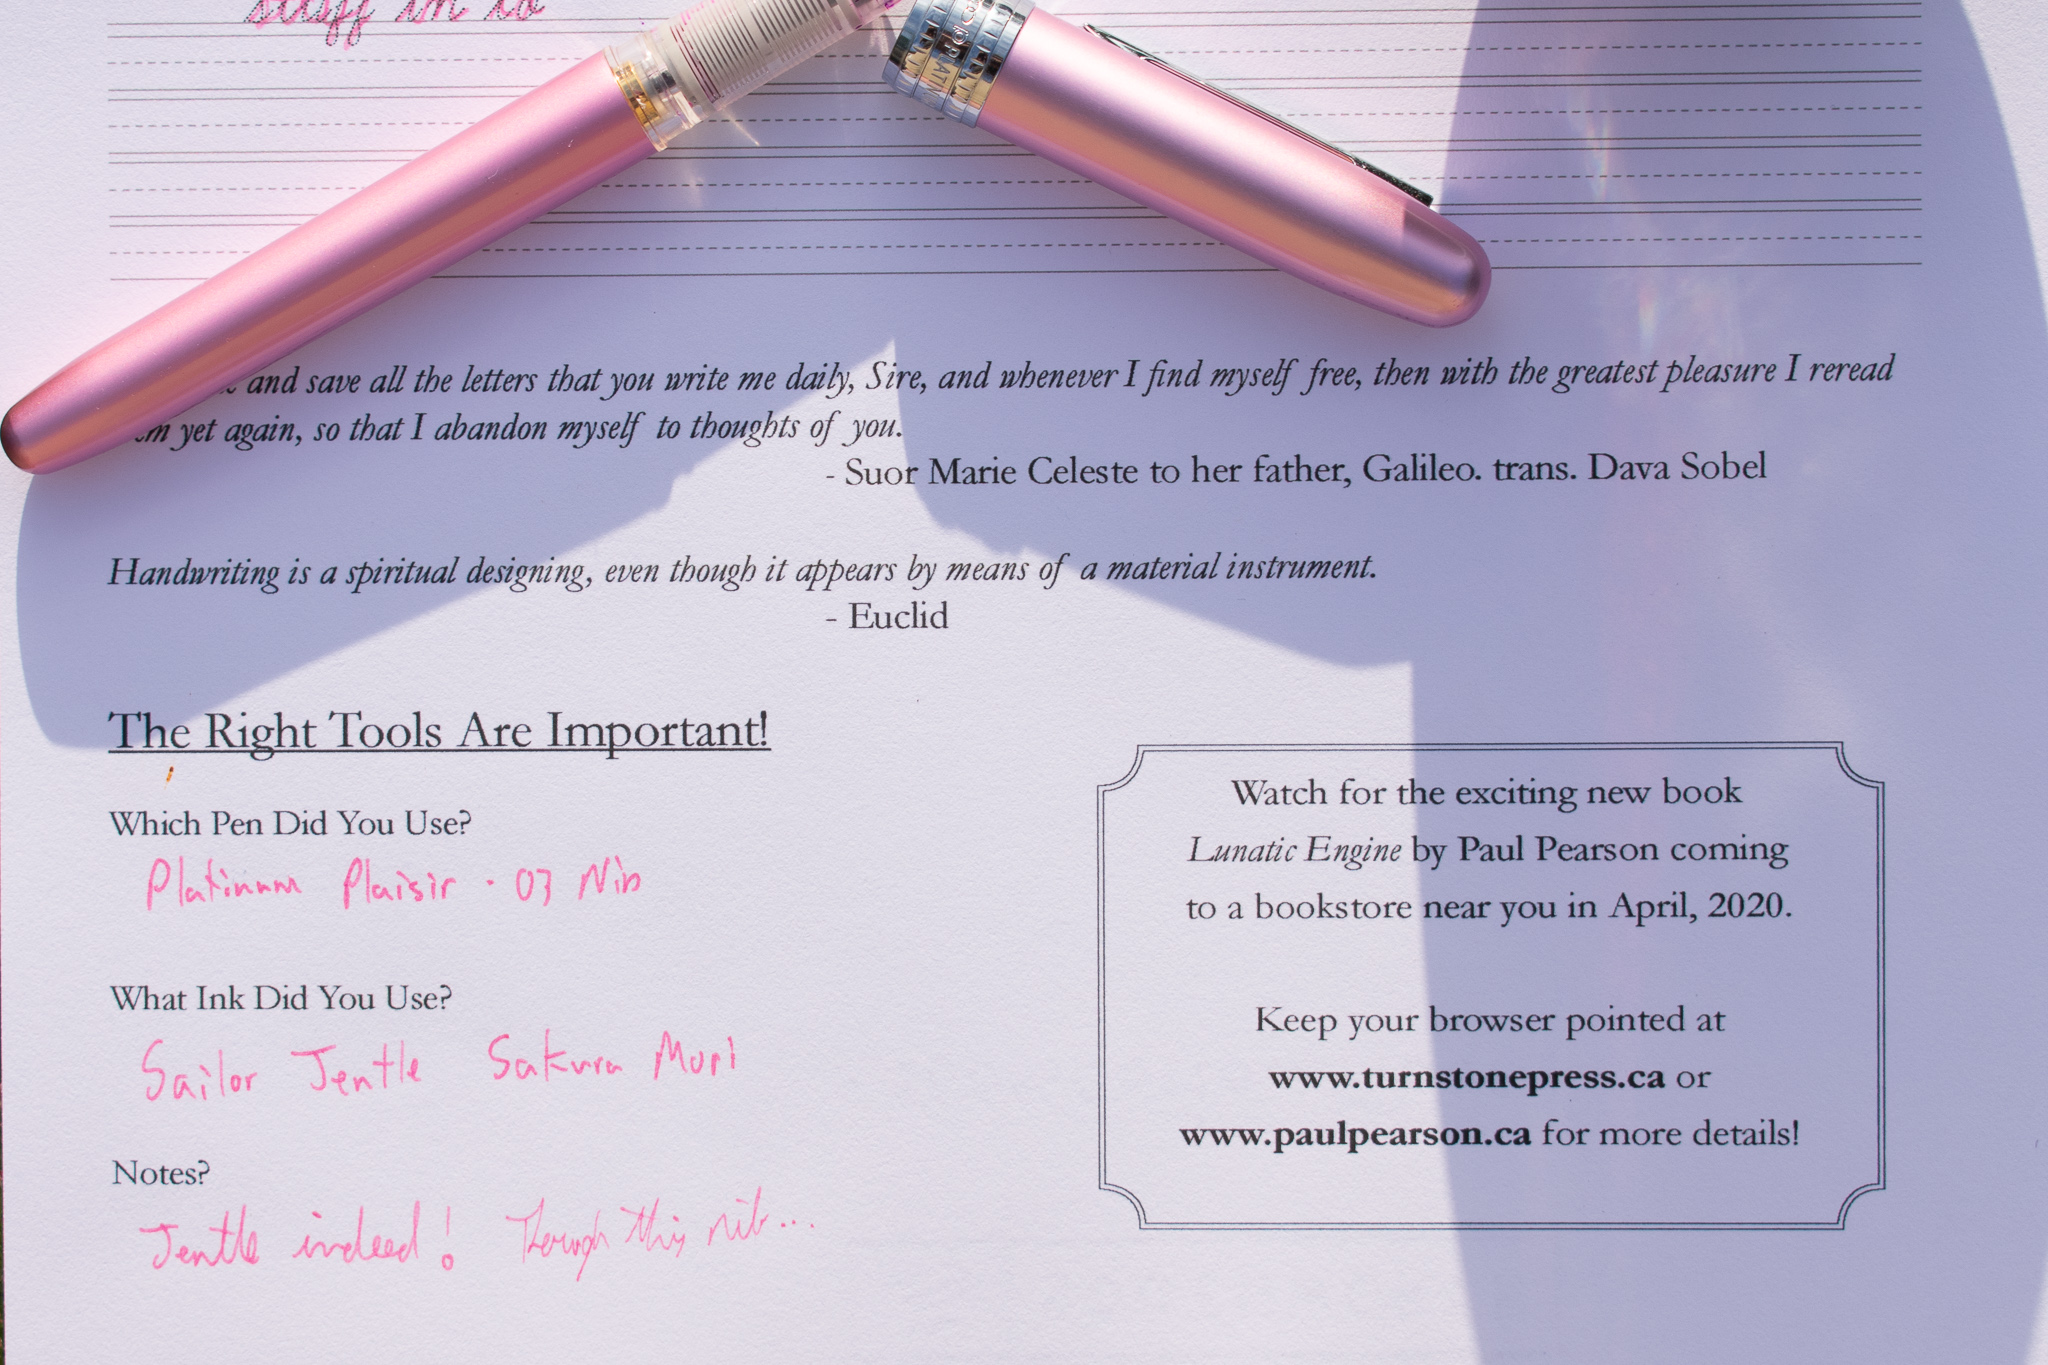 stuff in it
and save all the letters that you write me daily, Sire, and whenever I find myself free, then with the greatest pleasure I reread
yet again, so that I abandon myself to thoughts of you.
- Suor Marie Celeste to her father, Galileo. trans. Dava Sobel
Handwriting is a spiritual designing, even though it appears by means of a material instrument.
- Euclid
The Right Tools Are Important!
Which Pen Did You Use?
Platinum Plaisir · 03 Nib
What Ink Did You Use?
Sailor Jentle Sakura Mori
Notes?
Jentle indeed! Though this nib...
Watch for the exciting new book
Lunatic Engine by Paul Pearson coming
to a bookstore near you in April, 2020.
Keep your browser pointed at
www.turnstonepress.ca or
www.paulpearson.ca for more details!